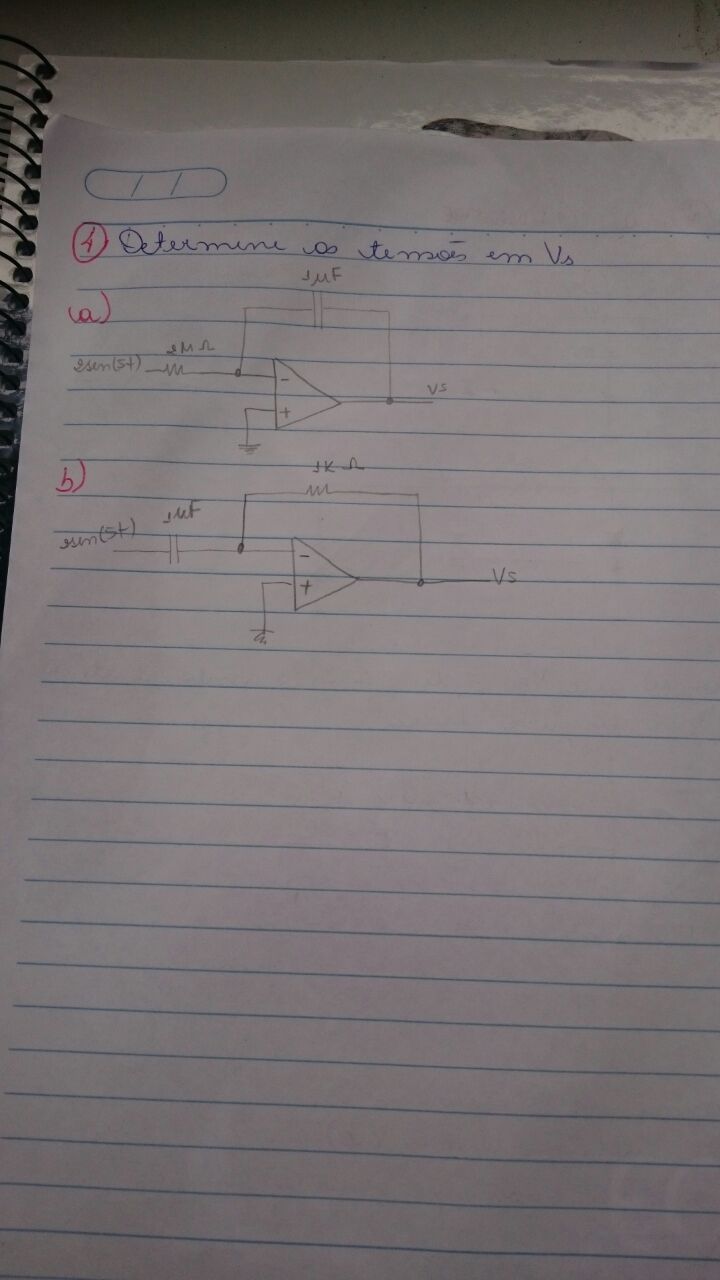 1 Determine as tensões em Vs
a)
1μF
2sen(5t)
Vs
-
+
b)
1KΩ
1μF
2sen(5t)
-
+
Vs